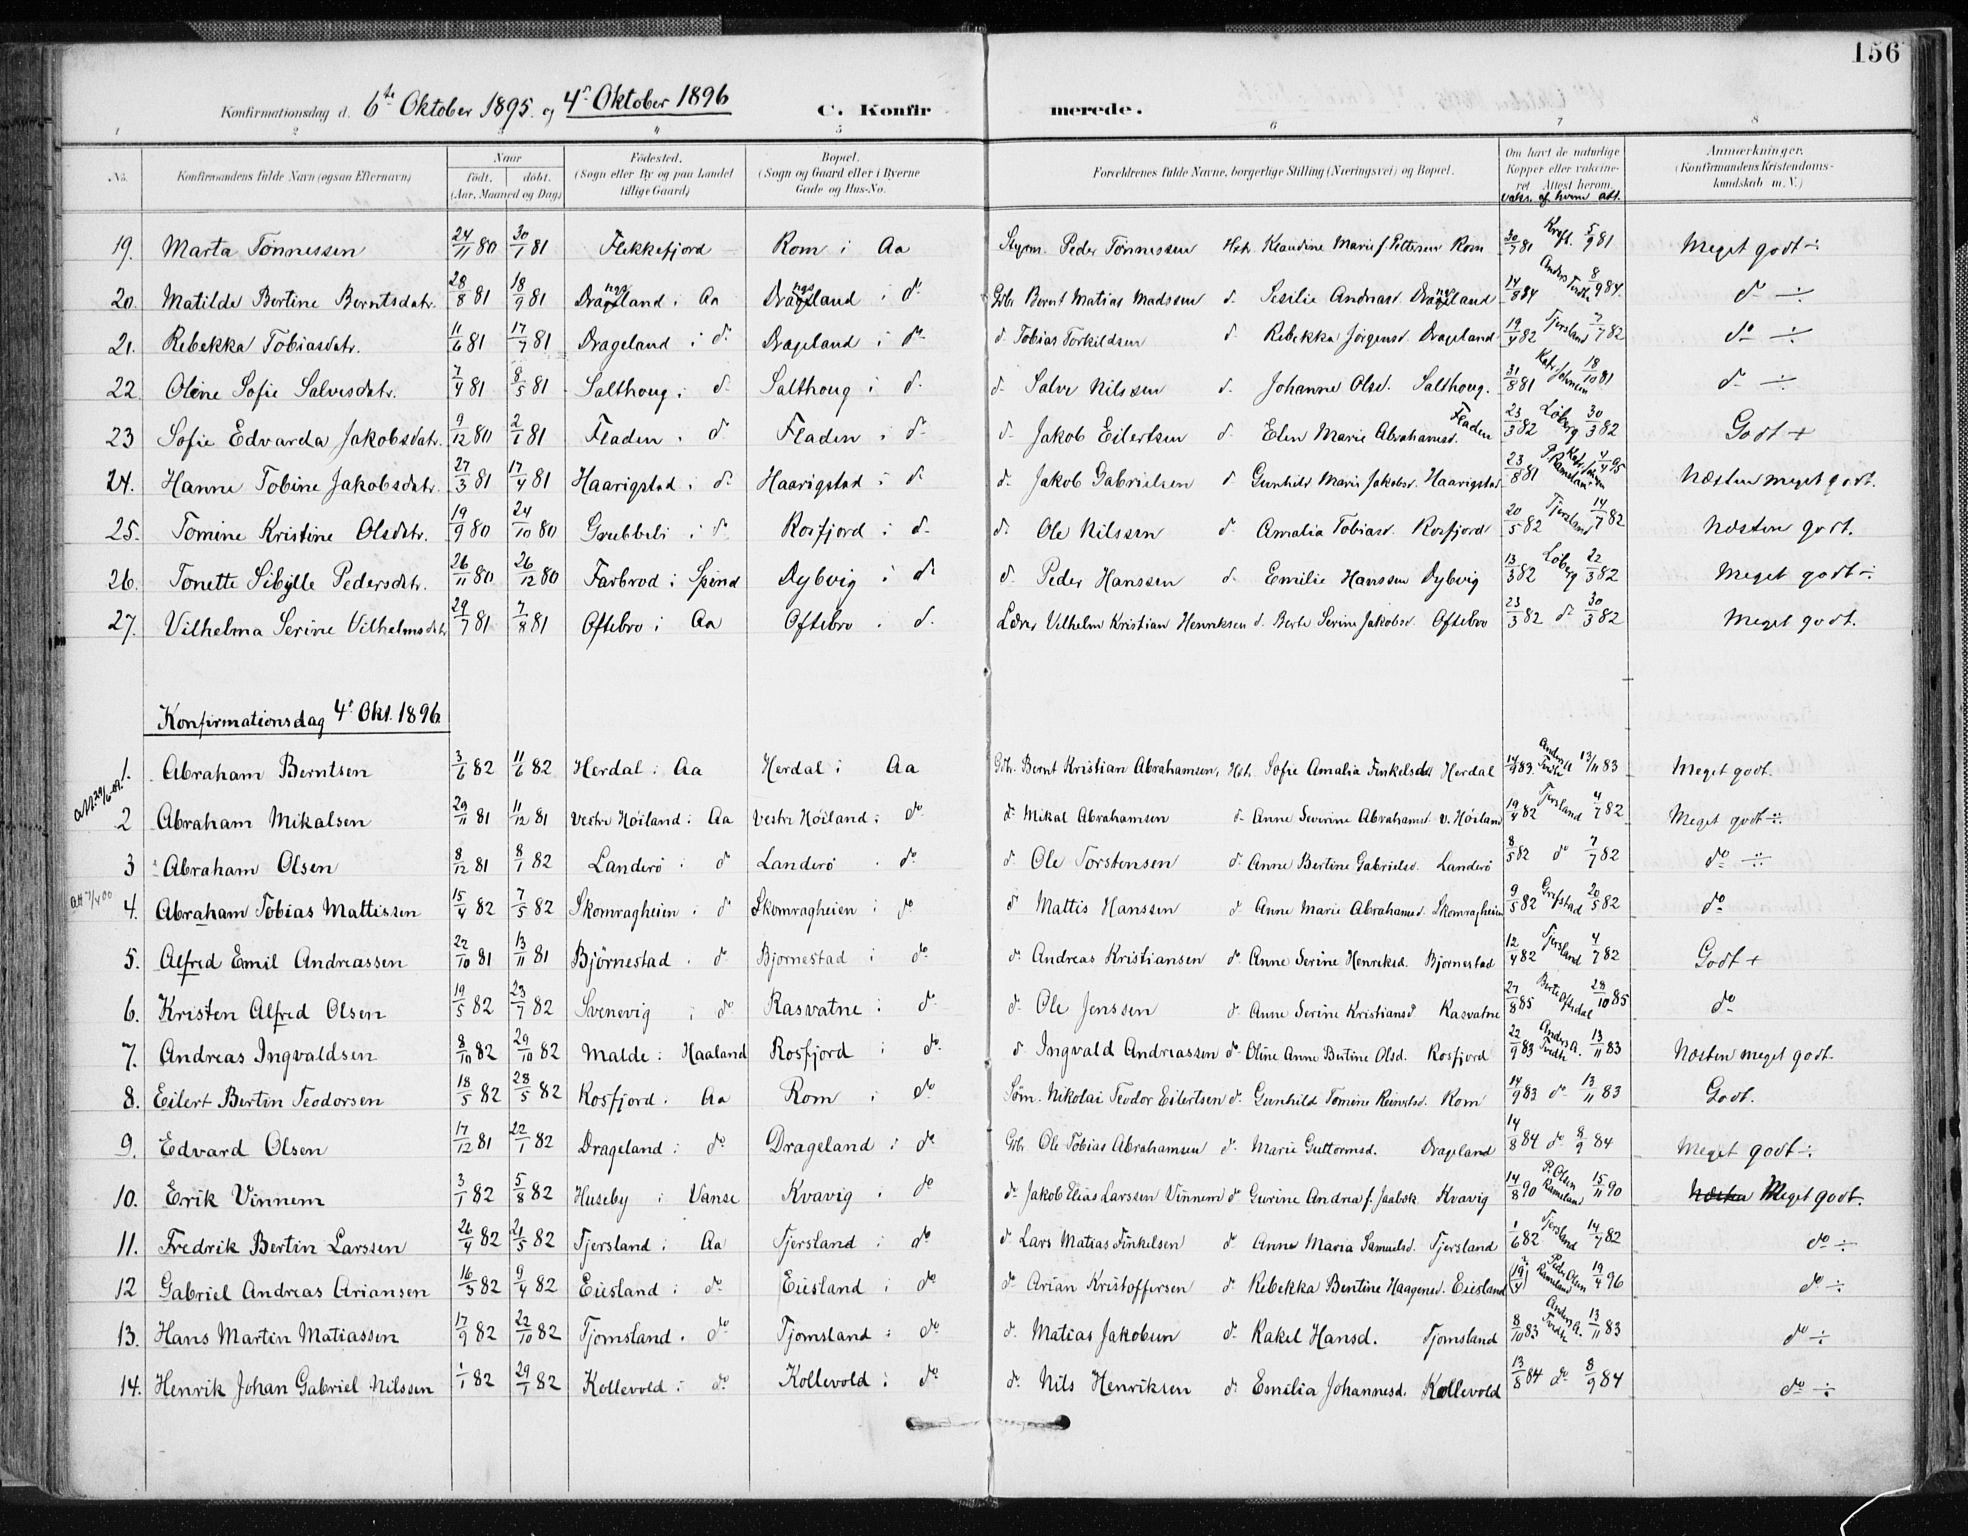 156
Konfirmationsdag d. 6te Oktober 1895. og 4de Oktober 1896 C. Konfirmerede.
1 2 3 4 5 6 7 8
No. Konfirmandens fulde Navn (ogsaa Efternavn) Naar født. døbt. (Aar, Maaned og Dag) Fødested. (Sogn eller By og paa Landet tillige Gaard) Bopæl. (Sogn og Gaard eller i Byerne Gade og Hus-No. Forældrenes fulde Navne, borgerlige Stilling (Næringsvei) og Bopæl. Om havt de naturlige Kopper eller vaccineret Attest herom. vaks. af hvem att. Anmærkninger. (Konfirmandens Kristendomskundskab m. V.)
19. Marta Tønnessen 24/11 80 30/1 81 Flekkefjord Rom i Aa Styrm. Peder Tønnessen Hst. Klaudine Marie f. Pettersen Rom 30/7 81 Kraft. 5/9 81 Meget godt ÷
20. Matilde Bertine Berntsdatr. 28/8 81 18/9 81 Drageland i Aa Drageland i do Gbr. Bernt Matias Madssen d. Sesilie Andreasd. Drageland 14/8 84 Anders Tvedte 8/9 84. do ÷
21. Rebekka Tobiasdtr. 11/6 81 17/7 81 Drageland i do Drageland i do d. Tobias Torkildsen d. Rebekka Jørgensd. Drageland 19/4 82 Tjersland 7/7 82 do ÷
22. Oline Sofie Salvesdatr. 7/4 81 8/5 81 Salthoug i do Salthoug i do d. Salve Nilssen d. Johanne Olsd. Salthoug. 31/8 81 18/10 81 do ÷
23 Sofie Edvarda Jakobsdatr. 9/12 80 2/1 81 Fladen i do Fladen i do d. Jakob Eilertsen d. Elen Marie Abrahamsd. Fladen 23/3 82 Løberg 30/3 82 Godt +
24. Hanne Tobine Jakobsdatr. 27/3 81 17/4 81 Haarigstad i do Haarigstad i do d. Jakob Gabrielsen d. Gunhild Marie Jakobsd. Haarigstad 23/8 81 4/4 95 Næsten meget godt.
25. Tomine Kristine Olsdtr. 19/9 80 24/10 80 Grubbeli i do Rosfjord i do d. Ole Nilssen d. Amalia Tobiasd. Rosfjord 20/5 82 Tjersland 14/7 82 Næsten godt.
26. Tonette Sibylle Pedersdtr. 26/11 80 26/12 80 Farbrod i Spind Dybvig i do d. Peder Hanssen d. Emilie Hanssen Dybvig 13/3 82 Løberg 22/3 82 Meget godt ÷
27. Vilhelma Serine Vilhelmsdtr. 29/7 81 7/8 81 Oftebro i Aa Oftebro i do Lærer Vilhelm Kristian Henriksen d. Berte Serine Jakobsd. Oftebro 23/3 82 do 30/3 82 Meget godt.
Konfirmationsdag 4de Okt. 1896.
1. Abraham Berntsen 3/6 82 11/6 82 Herdal i Aa Herdal i Aa Gbr. Bernt Kristian Abrahamsen, Hst. Sofie Amalia Finkelsdtr. Herdal 14/9 83. Anders A. Tvedte 13/11 83 Meget godt.
2 Abraham Mikalsen 29/11 81 11/12 81 Vestre Høiland i Aa Vestre Høiland i do d. Mikal Abrahamsen d. Anne Severine Abrahamsd. v. Høiland 19/4 82 Tjersland 4/7 82 Meget godt ÷
3 Abraham Olsen 8/12 81 8/1 82 Landerø i do Landerø i do d. Ole Torstensen d. Anne Bertine Gabrielsd. Landerø 8/5 82 do 7/7 82 do ÷
Att 7/4 00 4. Abraham Tobias Mattissen 15/4 82 7/5 82 Skomragheien i do Skomragheien i do d. Mattis Hanssen d. Anne Marie Abrahamsd. Skomragheien 9/5 82 Grifstad 20/5 82 do
5. Alfred Emil Andreassen 22/10 81 13/11 81 Bjørnestad i do Bjørnestad i do d. Andreas Kristiansen d. Anne Serine Henriksd. Bjørnestad 12/4 82 Tjersland 4/7 82 Godt +
6. Kristen Alfred Olsen 19/5 82 23/7 82 Svenevig i do Rasvatne i do d. Ole Jenssen d. Anne Serine Kristiansd. Rasvatne 27/8 85 28/10 85 do
7. Andreas Ingvaldsen 8/10 82 29/10 82 Malde i Haaland Rosfjord i do d. Ingvald Andreassen d. Oline Anne Bertine Olsd. Rosfjord 22/9 83 Anders A. Tvedte 13/11 83 Næsten meget godt.
8. Eilert Bertin Teodorsen 18/5 82 28/5 82 Rosfjord i Aa Rom i do Søm. Nikolai Teodor Eilertsen d. Gunhild Tomine Reinertsd. Rom 14/9 83 do 13/11 83 Godt.
9. Edvard Olsen 17/12 81 22/1 82 Drageland i do Drageland i do Gbr. Ole Tobias Abrahamsen d. Marie Guttormsd. Drageland 14/8 84 do 8/9 84 Meget godt ÷
10. Erik Vinnem 3/1 82 5/8 82 Huseby i Vanse Kvavig i do d. Jakob Elias Larssen Vinnem d. Gurine Andrea f. Jaabek Kvavig 14/8 90 P. Olsen Rameland 15/11 90 Næsten Meget godt.
11. Fredrik Bertin Larssen 26/4 82 21/5 82 Tjersland i Aa Tjersland i do d. Lars Matias Finkelsen d. Anne Maria Samuelsd. Tjersland 1/6 82 Tjersland 14/7 82 do ÷
12 Gabriel Andreas Ariansen 16/3 82 9/4 82 Eiesland i do Eiesland i do d. Arian Kristoffersen d. Rebekka Bentine Haagensd. Eiesland (19/4) Peder Olsen Rameland 19/4 96 do ÷
13. Hans Martin Matiassen 17/9 82 22/10 82 Tjomsland i do Tjomsland i do d. Matias Jakobsen d. Rakel Hansd. Tjomsland 8/10 83 Anders A. Tvedte 13/11 83 do ÷
14. Henrik Johan Gabriel Nilssen 1/1 82 29/1 82 Kollevold i do Kollevold i do d. Nils Henriksen d. Emilia Johannesd. Kollevold 13/8 84 do 8/9 84 do ÷